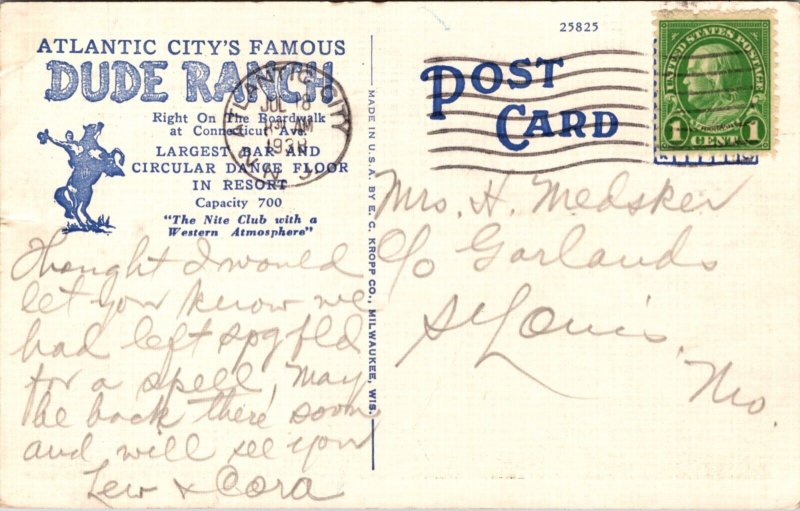 25825
ATLANTIC CITY'S FAMOUS
DUDE RANCH
Right On The Boardwalk
at Connecticut Ave.
LARGEST BAR AND
CIRCULAR DANCE FLOOR
IN RESORT
Capacity 700
"The Nite Club with a
Western Atmosphere"
ATLANTIC CITY
JUL 18
AM
1938
N.J.
MADE IN U.S.A. BY E. C. KROPP CO., MILWAUKEE, WIS.
POST
CARD
UNITED STATES POSTAGE
1 CENT 1
Thought I would
let you know we
had left Spgfld
for a spell, may
be back there soon
and will see you
Lew & Cora
Mrs. H. Medsker
c/o Garlands
St Louis,
Mo.